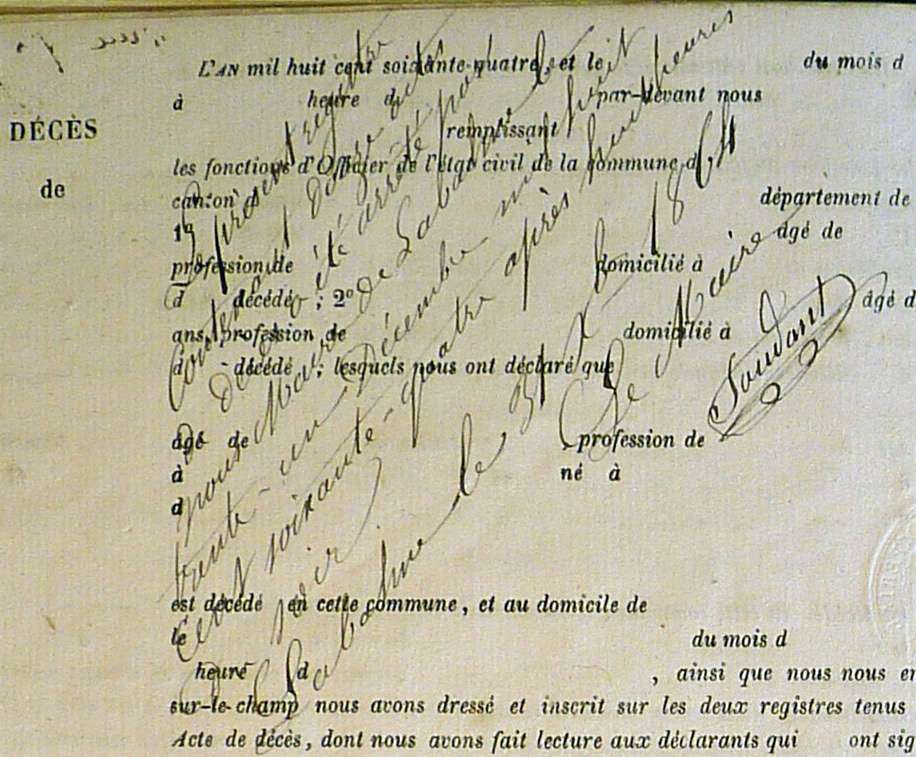 L'AN mil huit cent soixante-quatre, et le du mois d
à heure d par-devant nous
DÉCÈS
remplissant
les fonctions d'Officier de l'état civil de la commune d
de
canton d département de
1º âgé de
profession de domicilié à
d décédé ; 2º âgé d
ans, profession de domicilié à
d décédé ; lesquels nous ont déclaré que
âgé de , profession de
à né à
d
est décédé en cette commune, et au domicile de
le du mois d
heure d , ainsi que nous nous en
sur-le-champ nous avons dressé et inscrit sur les deux registres tenus
Acte de décès, dont nous avons fait lecture aux déclarants qui ont sig
Le présent registre
contenant douze actes
de décès a été arrêté par
nous Maire de Labalme le
trente-un Décembre mil huit
cent soixante-quatre après huit heures
du soir
Labalme le 31 Xbre 1864
Le Maire